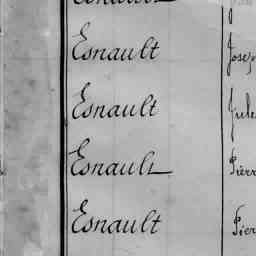 Esnault
Esnault Jose
Esnault Jule
Esnault Pierr
Esnault Pier